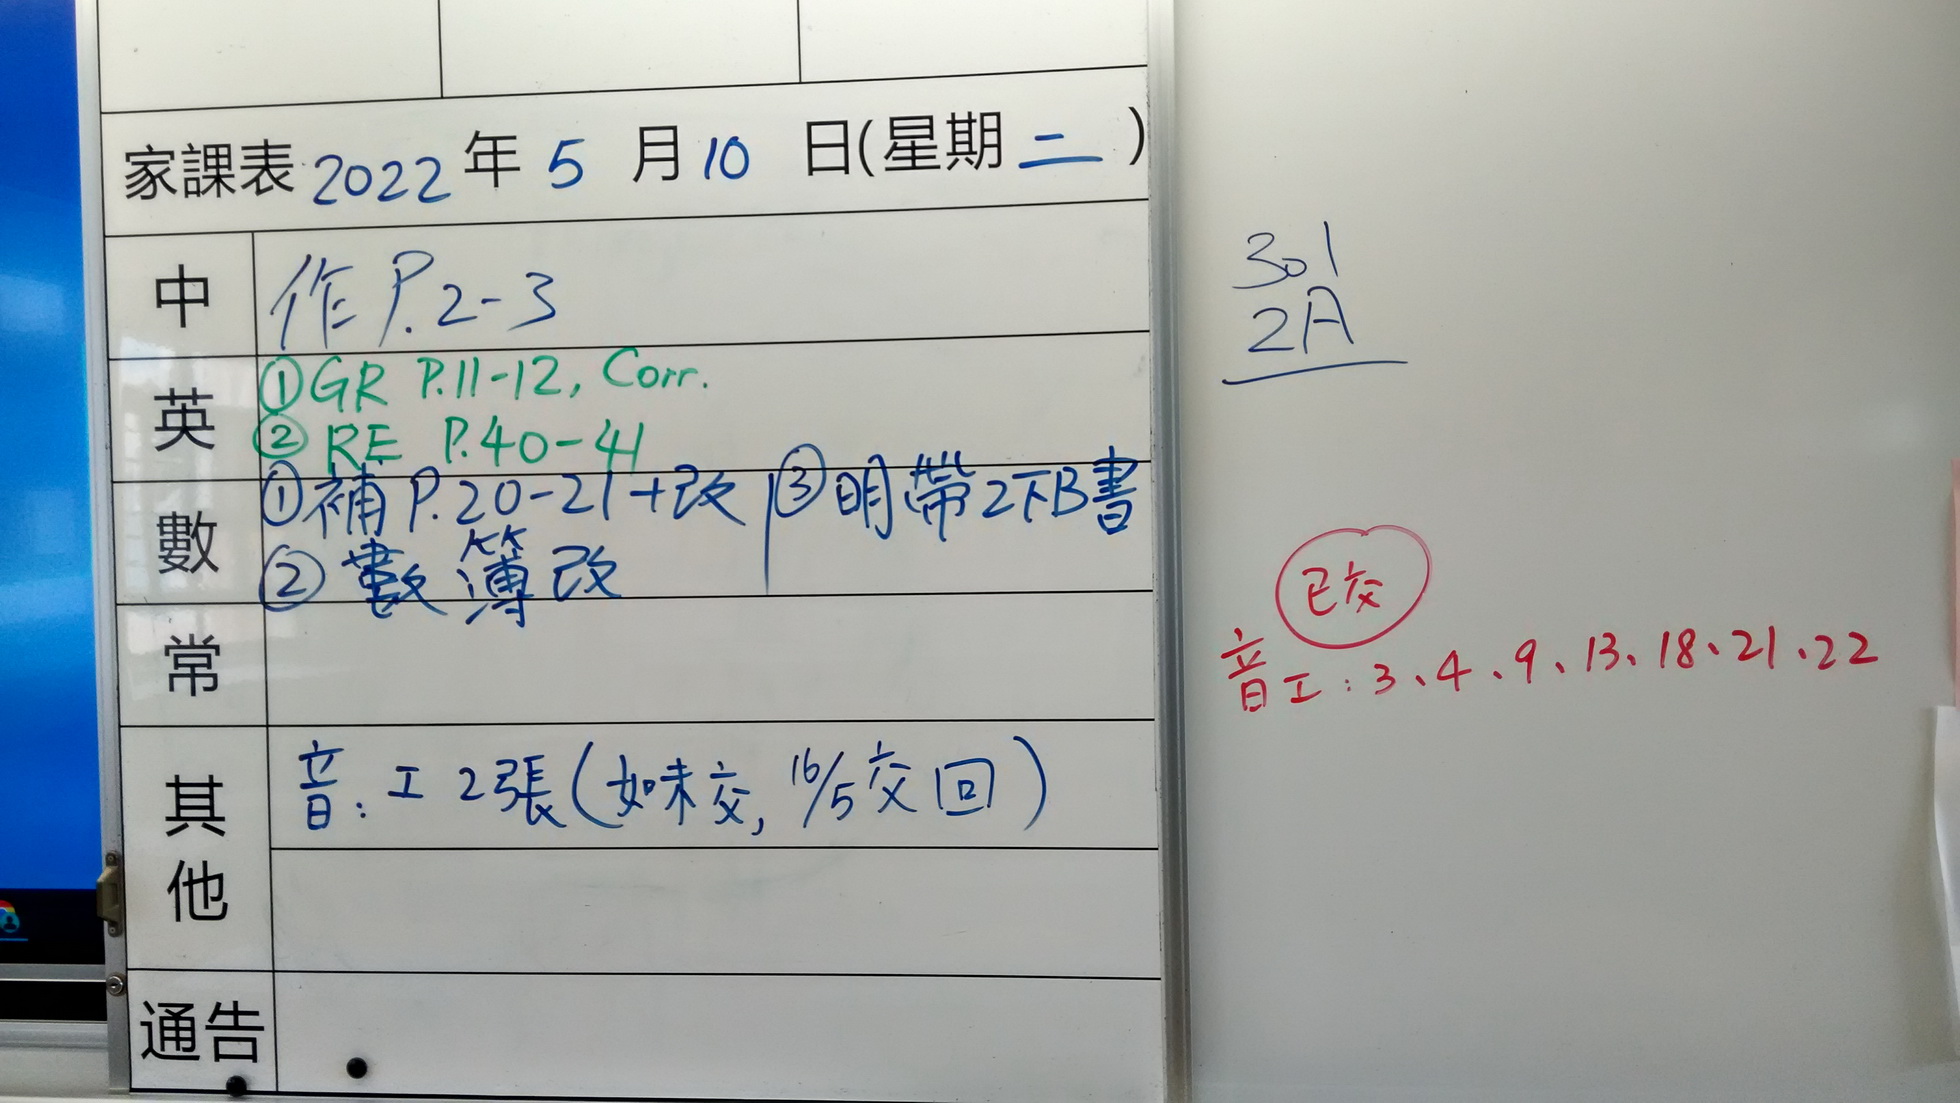 家課表 2022 年 5 月 10 日(星期 二 )
中 作 P.2-3
英 ①GR P.11-12, Corr.
② RE P.40-41
數 ①補 P.20-21+改 ③明帶2下B書
② 數簿改
常
其他 音: 工 2張(如未交, 16/5交回)
通告
301
2A
已交
音工: 3、4、9、13、18、21、22